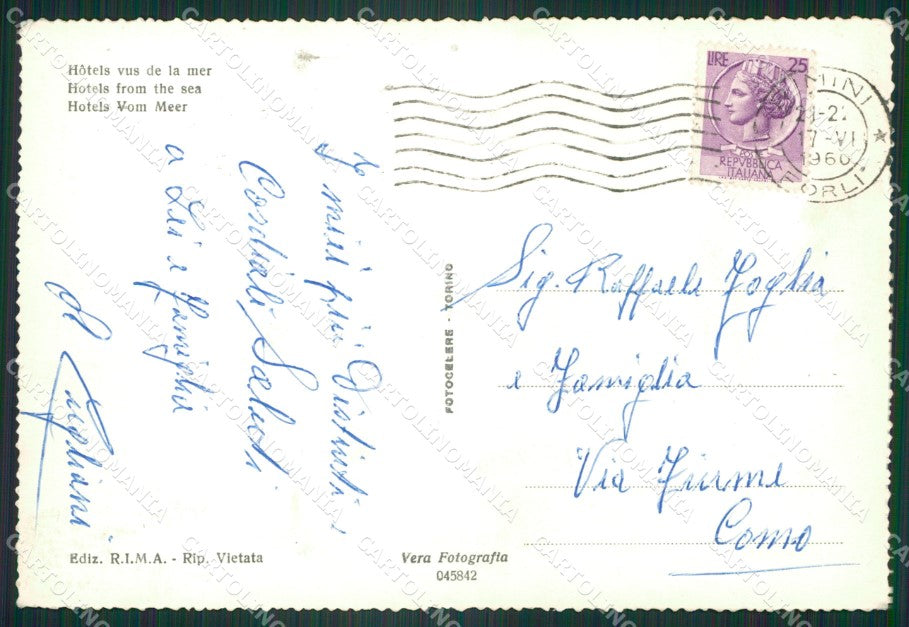 Hôtels vus de la mer
Hotels from the sea
Hotels Vom Meer
I miei più Distinti
Cordiali Saluti
a Lei e famiglia
LIRE 25
POSTE
REPVBBLICA
ITALIANA
RIMINI
21-22
17-VI
1960
FORLI
Sig. Raffaele Foglia
e Famiglia
Via Fiume
Como
FOTOCELERE - TORINO
Ediz. R.I.M.A. - Rip. Vietata
Vera Fotografia
045842
CARTOLINOMANIA